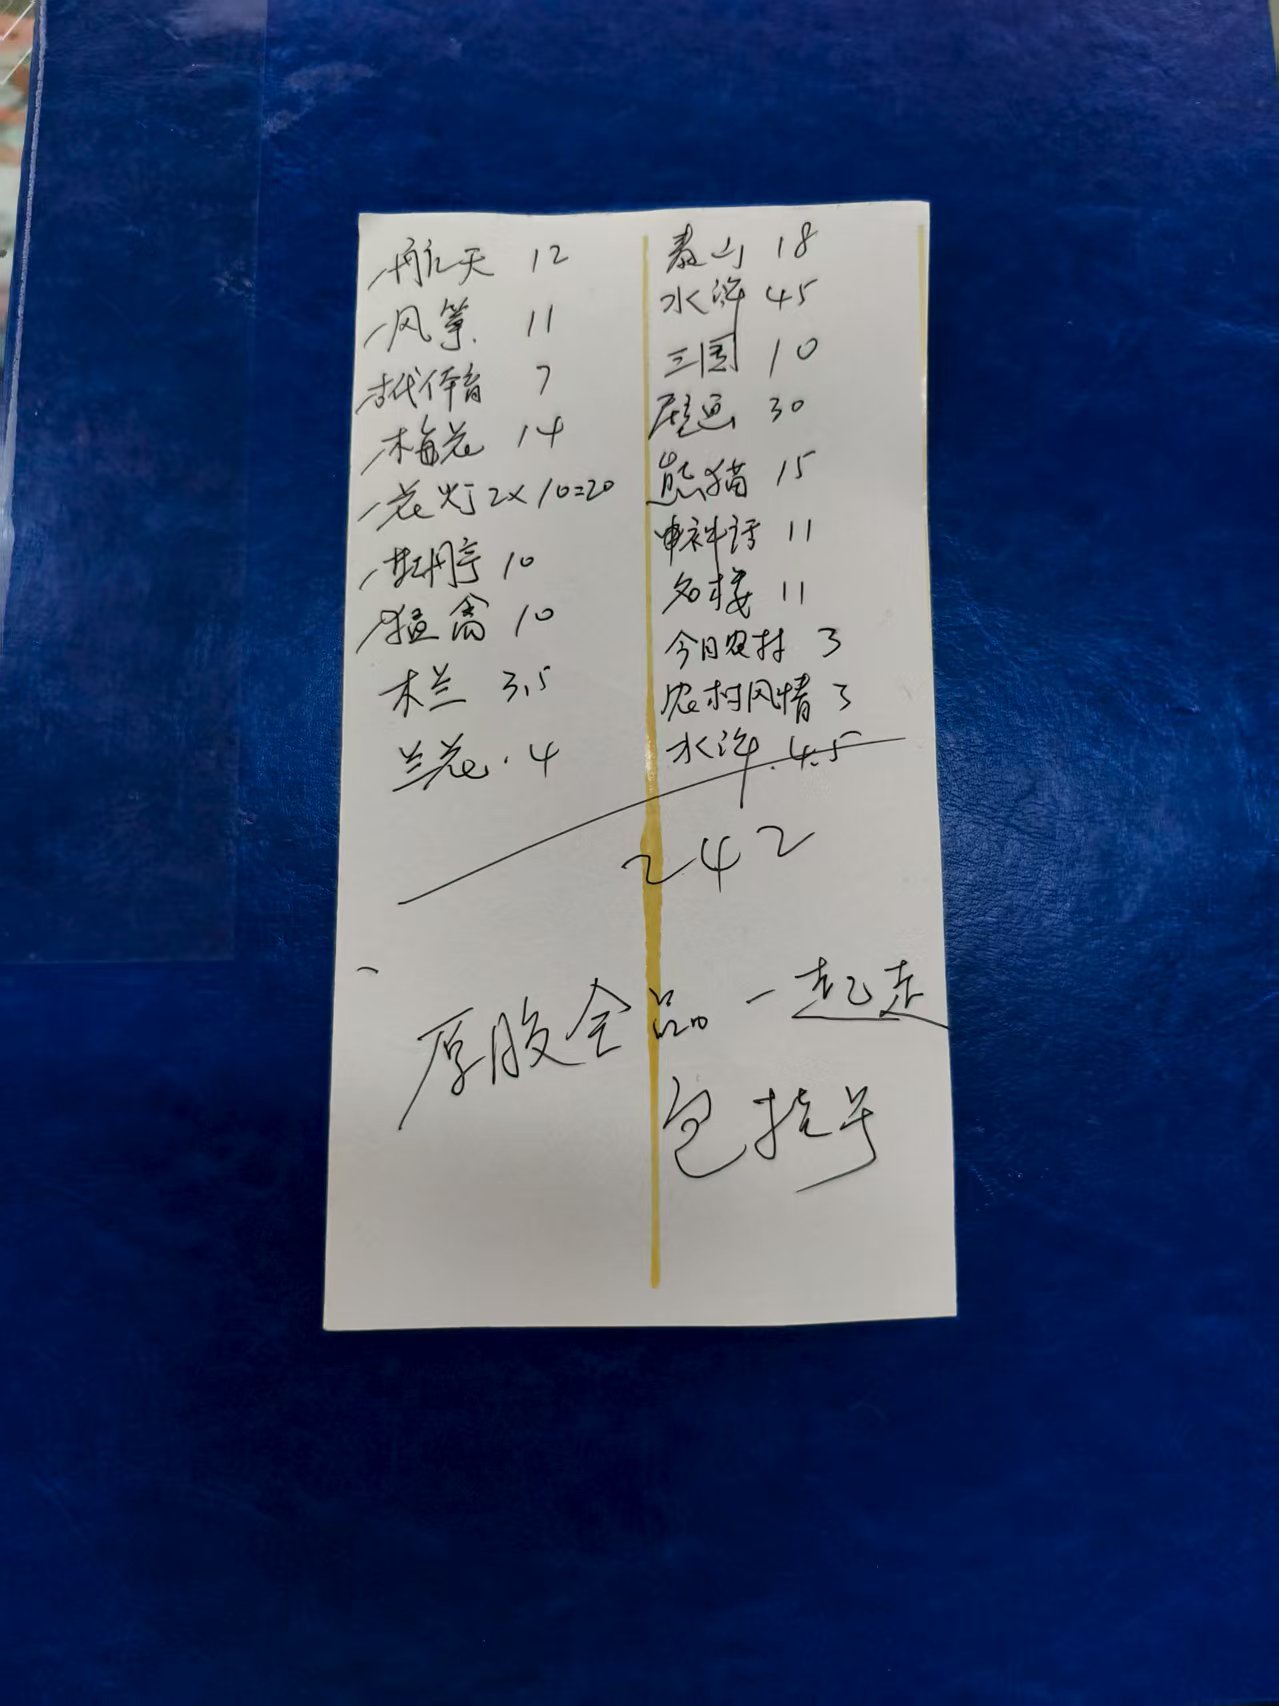 航天 12
风筝 11
古代体育 7
梅花 14
花灯 2×10=20
牡丹亭 10
猛禽 10
木兰 3.5
兰花.4
泰山 18
水浒 45
三国 10
壁画 30
熊猫 15
神话 11
名楼 11
今日农村 3
农村风情 3
水浒.4.5
242
原胶全品一起走
包挂号